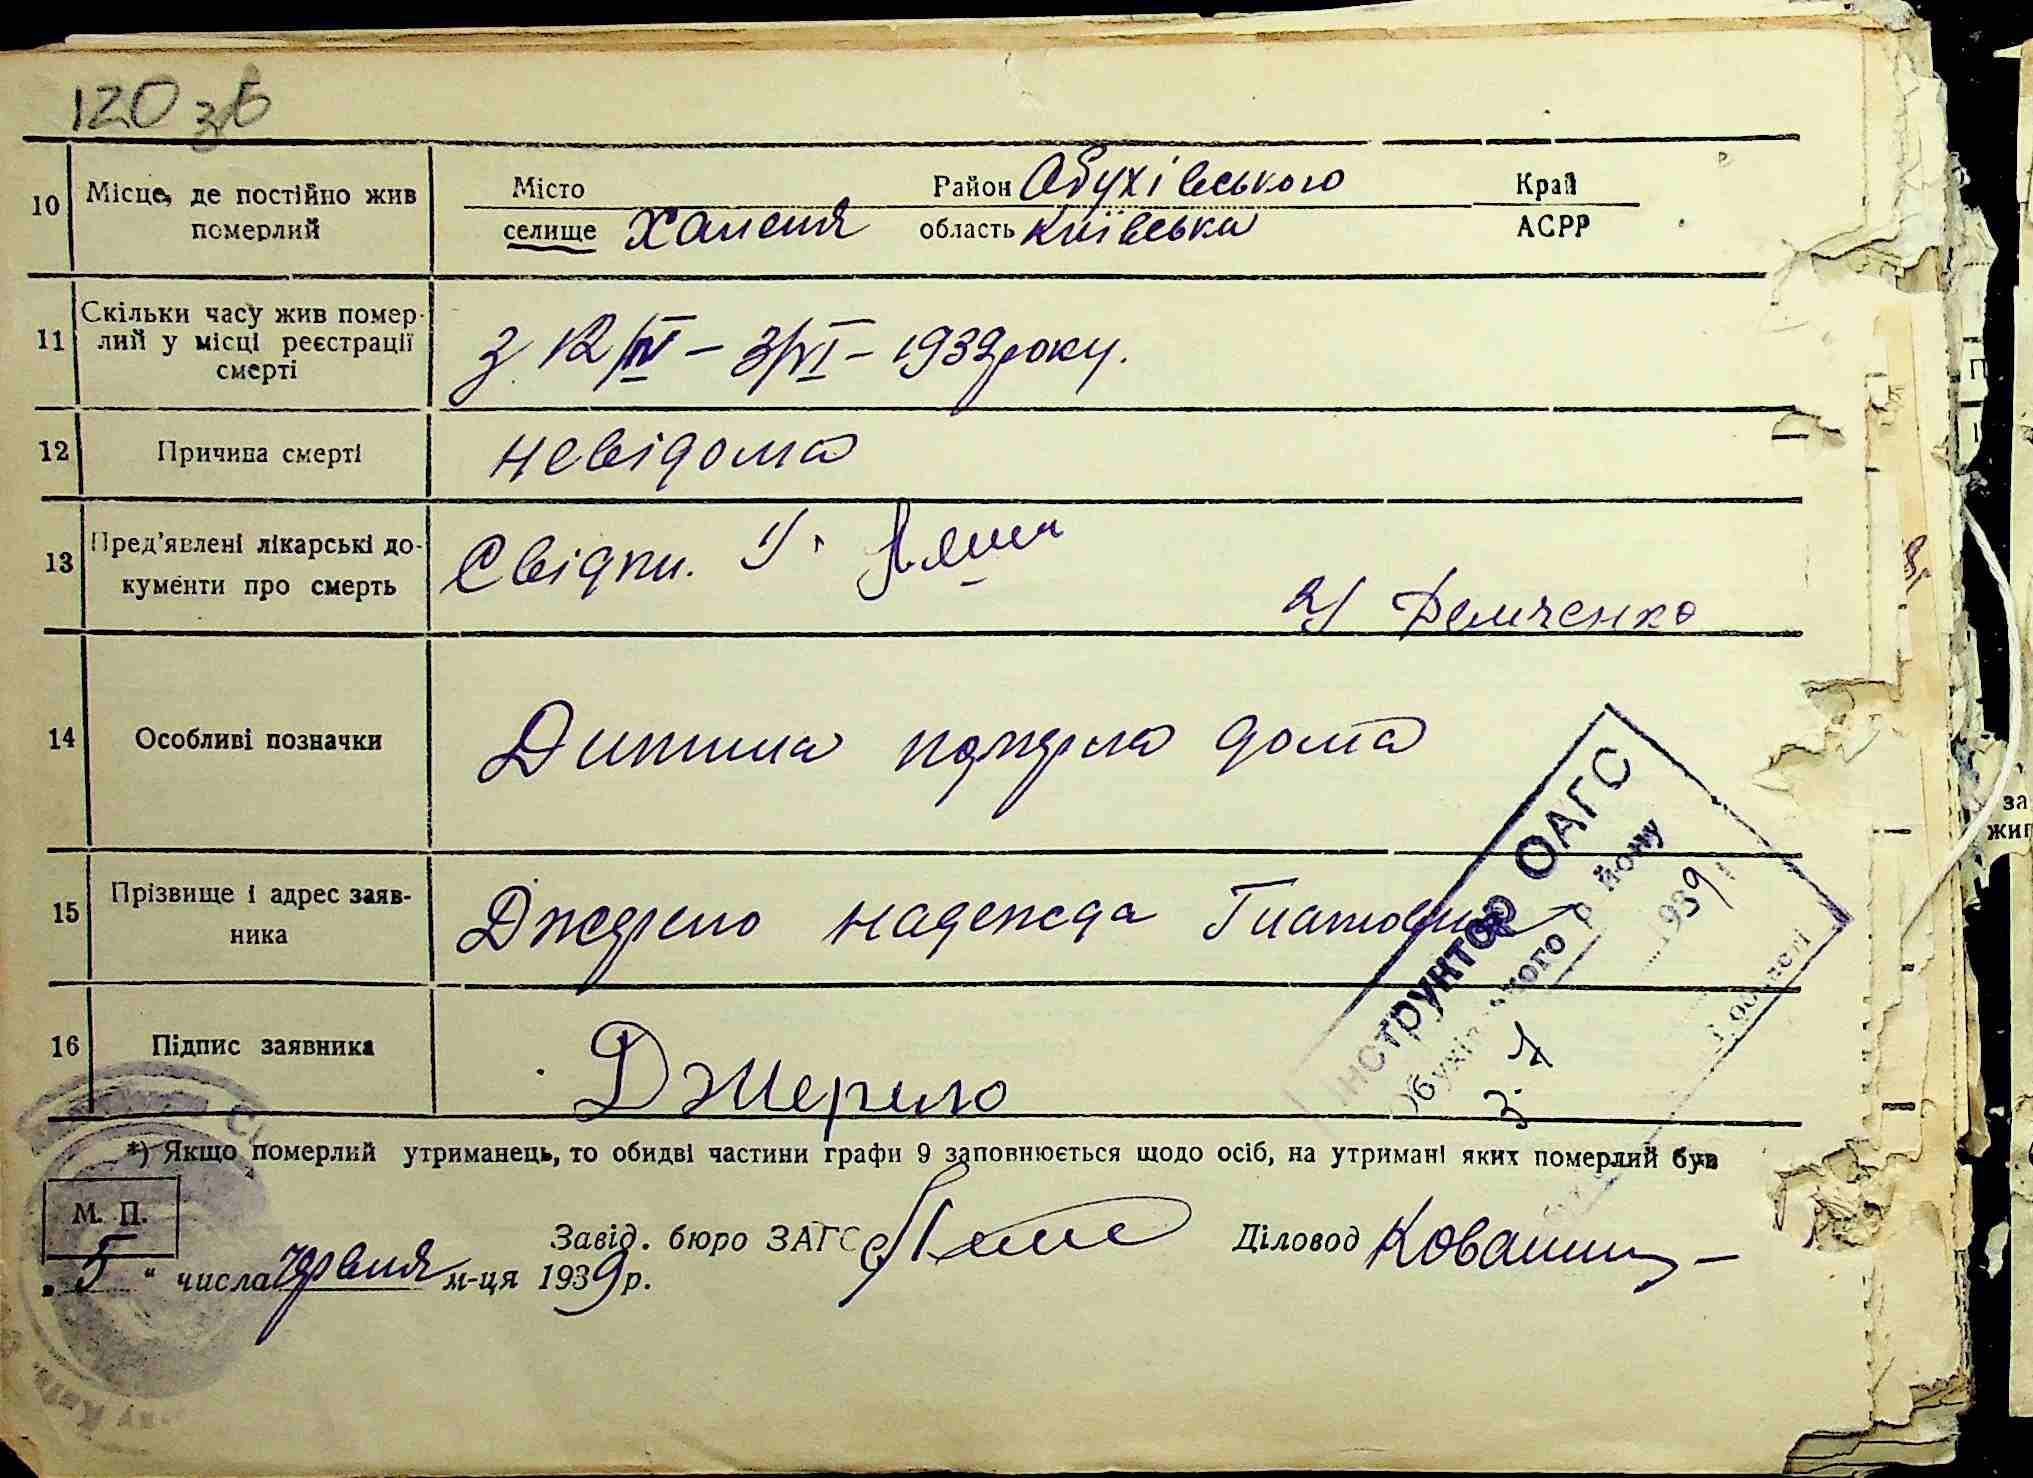 120 зв
10 Місце, де постійно жив померлий Місто Район Обухівського Край
селище Халепя область Київська АСРР
11 Скільки часу жив помер-
лий у місці реєстрації
смерті
з 12/IV – 3/VI – 1939 року.
12 Причина смерті невідома
13 Пред'явлені лікарські до-
кументи про смерть
Свідки. 1)
2) Демченко
14 Особливі позначки Дитина померла дома
15 Прізвище і адрес заяв-
ника
Джерело Надежда Гнатовна
16 Підпис заявника Джерело
Інструктор ОАГС
Обухівського р йону
1939
області
*) Якщо померлий утриманець, то обидві частини графи 9 заповнюється щодо осіб, на утримані яких померлий був
М. П.
Завід. бюро ЗАГС Діловод
„ 5 “ числа червня м-ця 1939 р.
за
жит